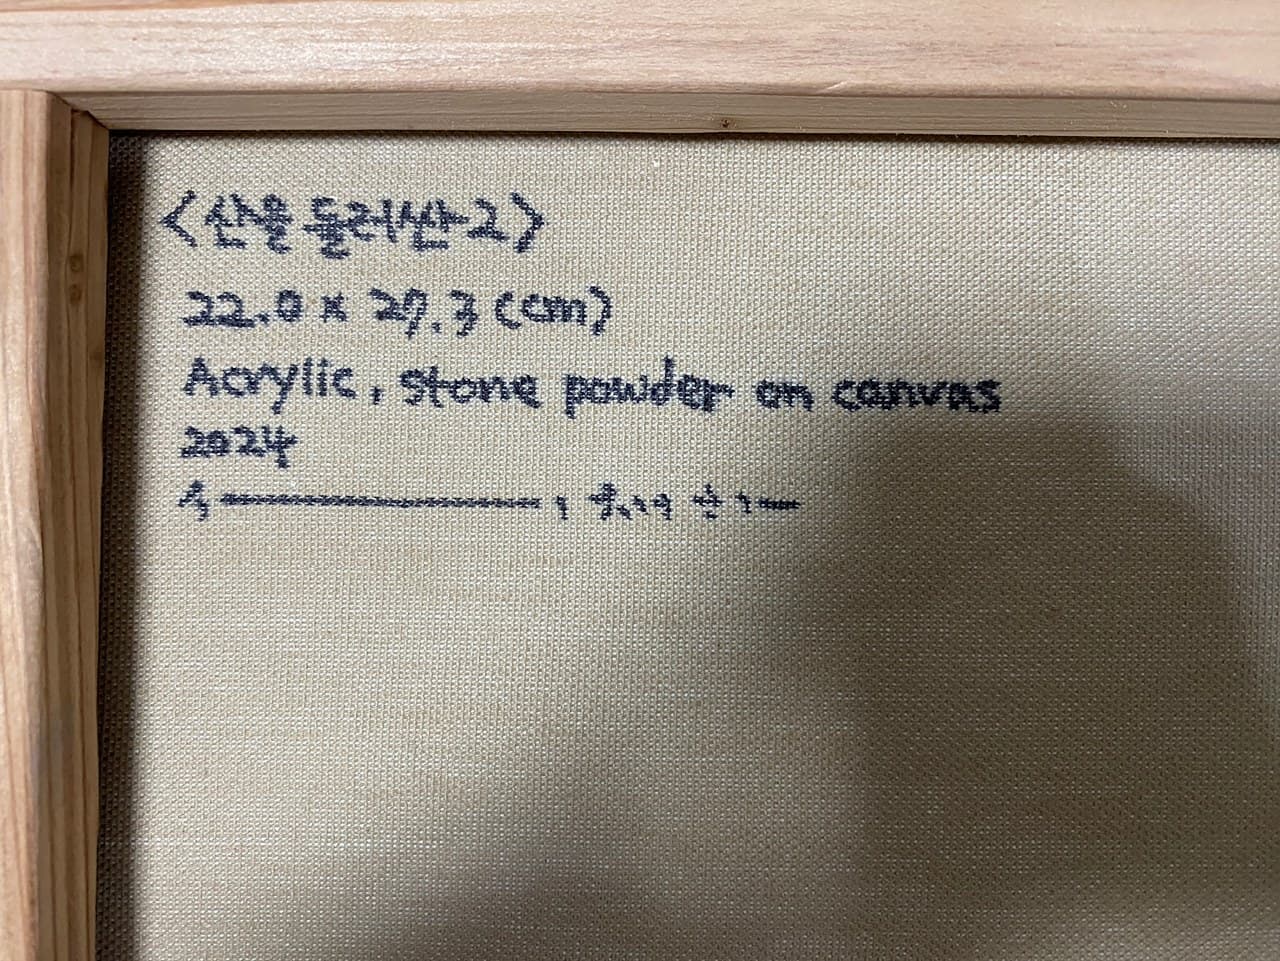 <산을 둘러싼산-2>
22.0 x 27.3 (cm)
Acrylic, stone powder on canvas
2024